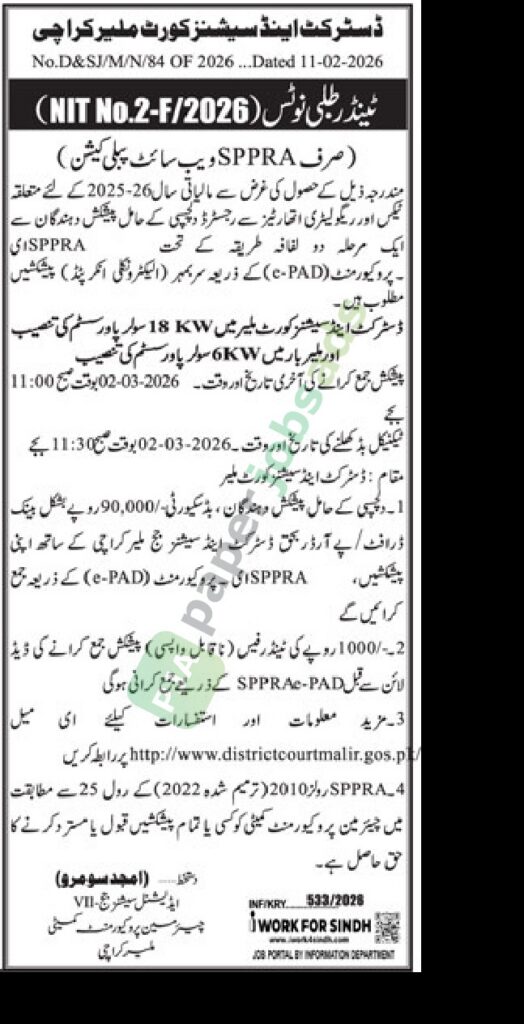 ڈسٹرکٹ اینڈ سیشنز کورٹ ملیر کراچی
No.D&SJ/M/N/84 OF 2026 ...Dated 11-02-2026
ٹینڈر طلبی نوٹس (NIT No.2-F/2026)
(صرف SPPRA ویب سائٹ پبلی کیشن)
مندرجہ ذیل کے حصول کی غرض سے مالیاتی سال 26-2025 کے لئے متعلقہ
ٹیکس اور ریگولیٹری اتھارٹیز سے رجسٹرڈ دلچسپی کے حامل پیشکش دہندگان سے
ایک مرحلہ دو لفافہ طریقہ کے تحت SPPRA ای
۔ پروکیورمنٹ (e-PAD) کے ذریعہ سربمہر (الیکٹرونکلی انکرپٹڈ) پیشکشیں
مطلوب ہیں۔
ڈسٹرکٹ اینڈ سیشنز کورٹ ملیر میں 18 KW سولر پاور سسٹم کی تنصیب
اور ملیر بار میں 6KW سولر پاور سسٹم کی تنصیب
پیشکش جمع کرانے کی آخری تاریخ اور وقت۔ 02-03-2026 بوقت صبح 11:00
بجے
ٹیکنیکل بڈ کھلنے کی تاریخ اور وقت۔ 02-03-2026 بوقت صبح 11:30 بجے
مقام: ڈسٹرکٹ اینڈ سیشنز کورٹ ملیر
1۔ دلچسپی کے حامل پیشکش دہندگان، بڈ سکیورٹی -/90,000 روپے بشکل بینک
ڈرافٹ/ پے آرڈر بحق ڈسٹرکٹ اینڈ سیشنز جج ملیر کراچی کے ساتھ اپنی
پیشکشیں، SPPRA ای۔ پروکیورمنٹ (e-PAD) کے ذریعہ جمع
کرائیں گے
2۔ -/1000 روپے کی ٹینڈر فیس (ناقابل واپسی) پیشکش جمع کرانے کی ڈیڈ
لائن سے قبل SPPRAe-PAD کے ذریعے جمع کرانی ہوگی
3۔ مزید معلومات اور استفسارات کیلئے ای میل
http://www.districtcourtmalir.gos.pk/ پر رابطہ کریں
4۔ SPPRA رولز 2010 (ترمیم شدہ 2022) کے رول 25 سے مطابقت
میں چیئرمین پروکیورمنٹ کمیٹی کو کسی یا تمام پیشکشیں قبول یا مسترد کرنے کا
حق حاصل ہے۔
دستخط...... (امجد سومرو)
ایڈیشنل سیشنز جج-VII
چیئرمین پروکیورمنٹ کمیٹی
ملیر کراچی
INF/KRY 533/2026
I WORK FOR SINDH
www.iwork4sindh.com
JOB PORTAL BY INFORMATION DEPARTMENT
PJA paperjobsads